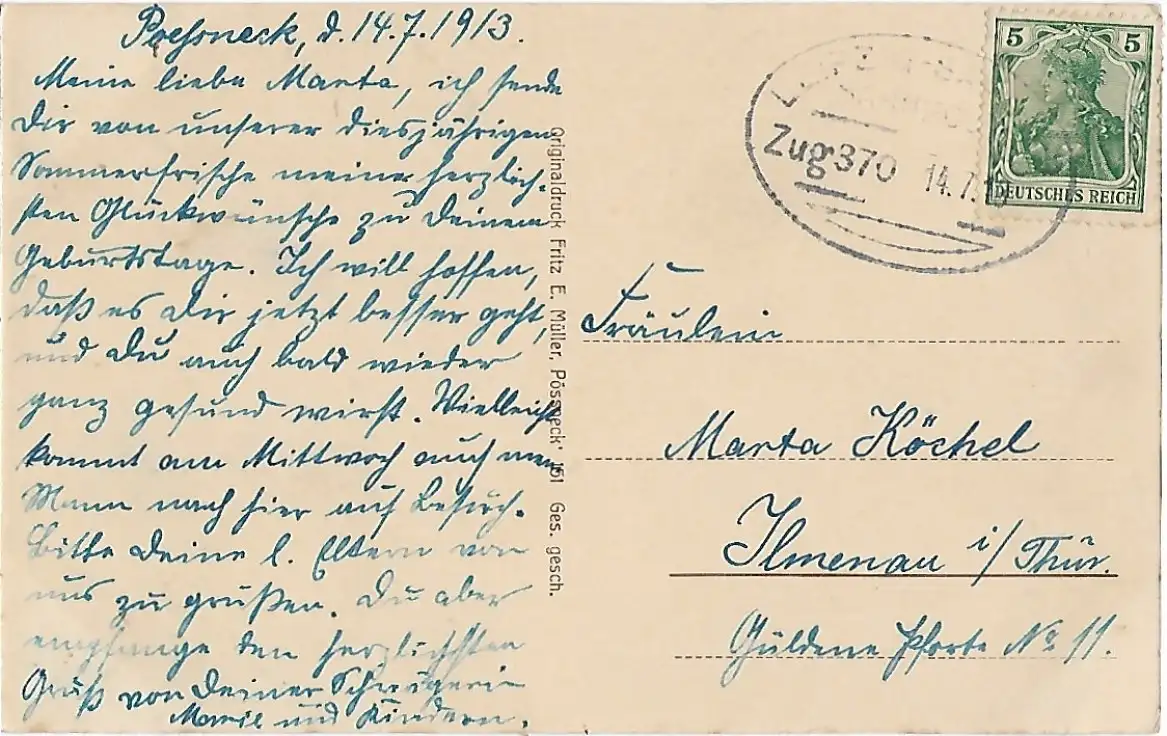 Poessneck, d. 14.7.1913.
Meine liebe Marta, ich sende
Dir von unserer diesjährigen
Sommerfrische meine herzlich-
sten Glückwünsche zu Deinem
Geburtstage. Ich will hoffen,
daß es Dir jetzt besser geht,
und Du auch bald wieder
ganz gesund wirst. Vielleicht
kommt am Mittwoch auch mein
Mann nach hier auf Besuch.
Bitte Deine l. Eltern von
uns zu grüßen. Du aber
empfange den herzlichsten
Gruß von Deiner Schwägerin
Marie und Kindern.
Originaldruck Fritz E. Müller, Pössneck 151 Ges. gesch.
Zug 370 14.7.
5 5
DEUTSCHES REICH
Fräulein
Marta Köchel
Ilmenau i/Thür.
Güldene Pforte No 11.